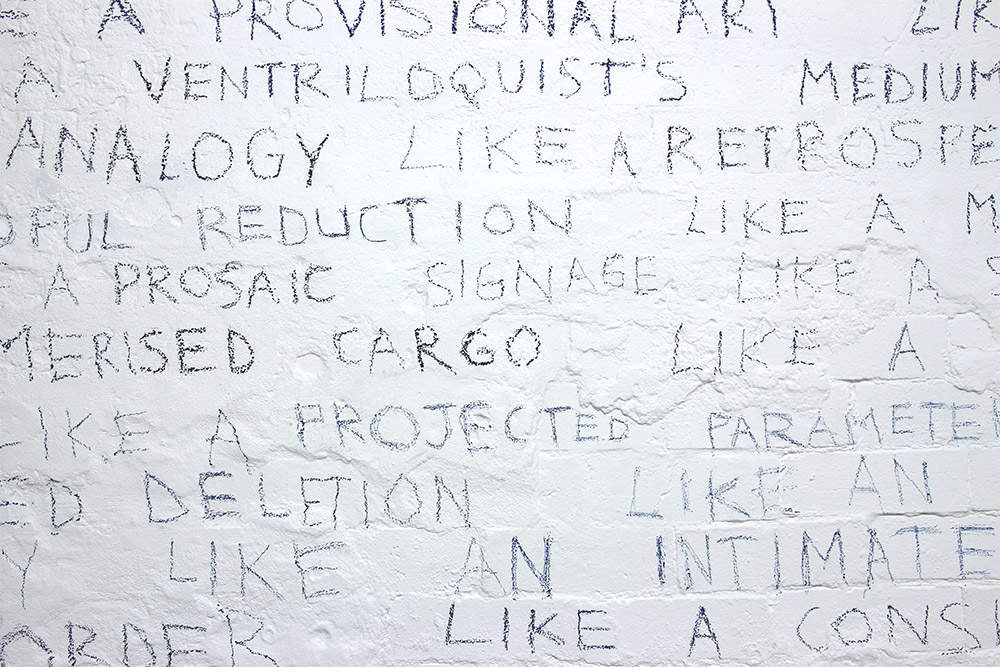 E A PROVISIONAL ART LIK
A VENTRILOQUIST'S MEDIUM
ANALOGY LIKE A RETROSPE
DFUL REDUCTION LIKE A M
E A PROSAIC SIGNAGE LIKE A S
MERISED CARGO LIKE A
LIKE A PROJECTED PARAMETE
ED DELETION LIKE AN
Y LIKE AN INTIMATE
ORDER LIKE A CONSI